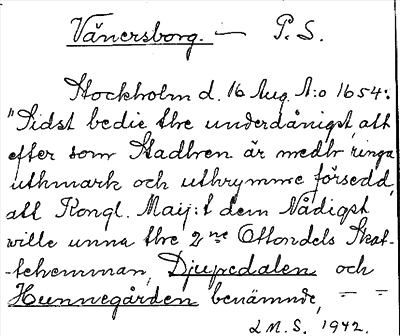 Vänersborg. — P. S.
Stockholm d. 16 Aug. A:o 1654:
"Sidst bedie thre underdånigst, att
efter som Stadhren är medh ringa
uthmark och uthrymme försedd,
att Kongl. Maij:t dem Nådigst
wille unna thre 2ne Ottondels Skat-
-tehemman, Djupedalen och
Hunnegården benämnde, — =
L. M. S. 1942.